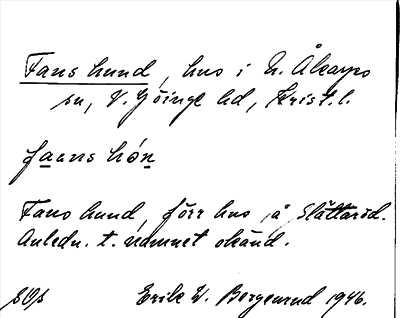 Fans hund, hus i N. Åkarps
sn, V. Göinge hd, Krist. l.
faans hón
Fans hund, förr hus på Slättaröd.
Anledn. t. namnet okänd.
Erik W. Bergenrud 1946.